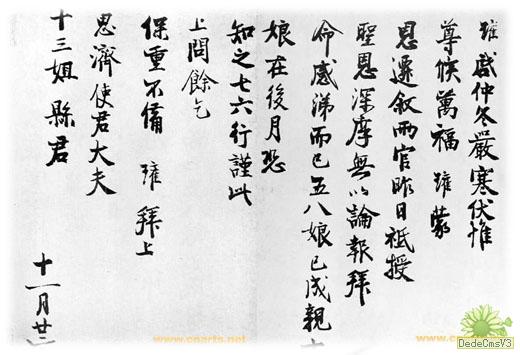 雍啟仲冬嚴寒伏惟
尊候萬福雍蒙
恩遷叙兩官昨日祗授
聖恩深厚無以論報拜
命感涕而已五八娘已成親
娘在後月恐
知之七六行謹此
上問餘乞
保重不備 雍 拜上
思濟使君大夫
十三姐縣君
十一月廿
DedeCmsV3